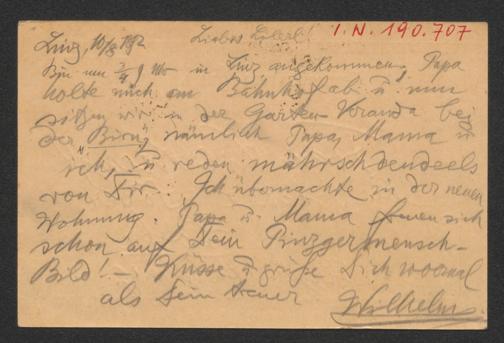 I. N. 190.707
Linz, 10/8 192 Liebes
Bin um 3/4 9 Uhr in Linz angekommen, Papa
holte mich am Bahnhof ab u. nun
sitzen wir in der Garten-Veranda bei
der "Birn", nämlich Papa, Mama u
ich, u reden mährschdendeels
von Dir. Ich übernachte in der neuen
Wohnung. Papa u. Mama freuen sich
schon auf Dein Pinzgermensch-
Bild! – Küsse u grüße Dich
als Dein treuer
Wilhelm